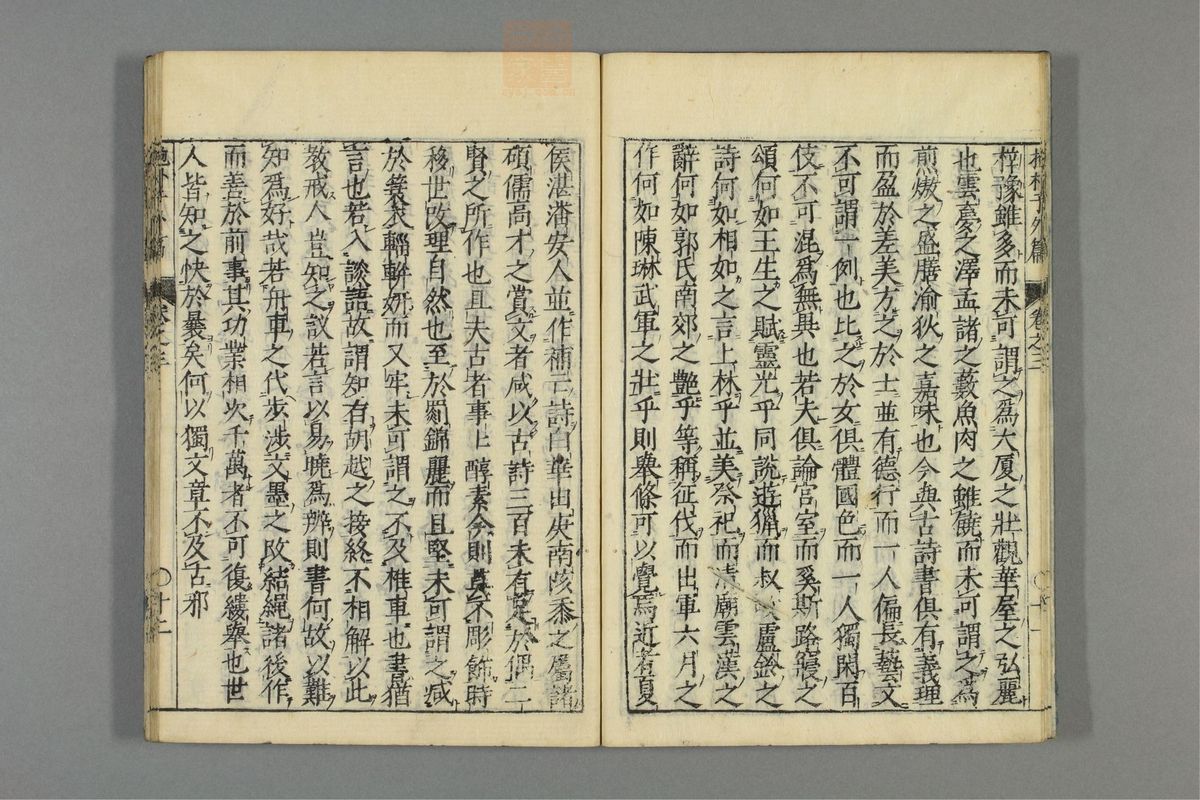 抱朴子外篇 卷之三
梓豫雖多而未可謂之爲大厦之壯觀華屋之弘麗
也雲夢之澤孟諸之藪魚肉之雖饒而未可謂之爲
煎熬之盛膳渝狄之嘉味也今與古詩書俱有義理
而盈於差美方之於士並有德行而一人偏長藝文
不可謂一例也比之於女俱體國色而一人獨閑百
伎不可混爲無異也若夫俱論宮室而奚斯路寢之
頌何如王生之賦靈光乎同說遊獵而叔 盧鈴之
詩何如相如之言上林乎並美祭祀而清廟雲漢之
辭何如郭氏南郊之艶乎等稱征伐而出軍六月之
作何如陳琳武軍之壯乎則舉條可以覺焉近者夏
侯湛潘安人並作補亡詩白華由庚南陔黍之屬諸
碩儒高才之賞文者咸以古詩三百未有足於偶二
賢之所作也且夫古者事上醇素今則莫不彫飾時
移世改理自然也至於罽錦麗而且堅未可謂之减
於蓑衣輜軿妍而又牢未可謂之不及椎車也書猶
言也若入談語故謂知有胡越之接終不相解以此
教戒人豈知之哉若言以易曉爲辨則書何故以難
知爲好哉若舟車之代步涉文墨之改結繩諸後作
而善於前事其功業相次千萬者不可復縷舉也世
人皆知之快於曩矣何以獨文章不及古邪
抱朴子外篇 卷之三 〇十二